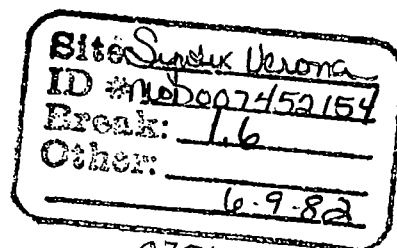 Site: Syntex Verona
ID # MOD007452154
Break: 1.6
Other:
6-9-82